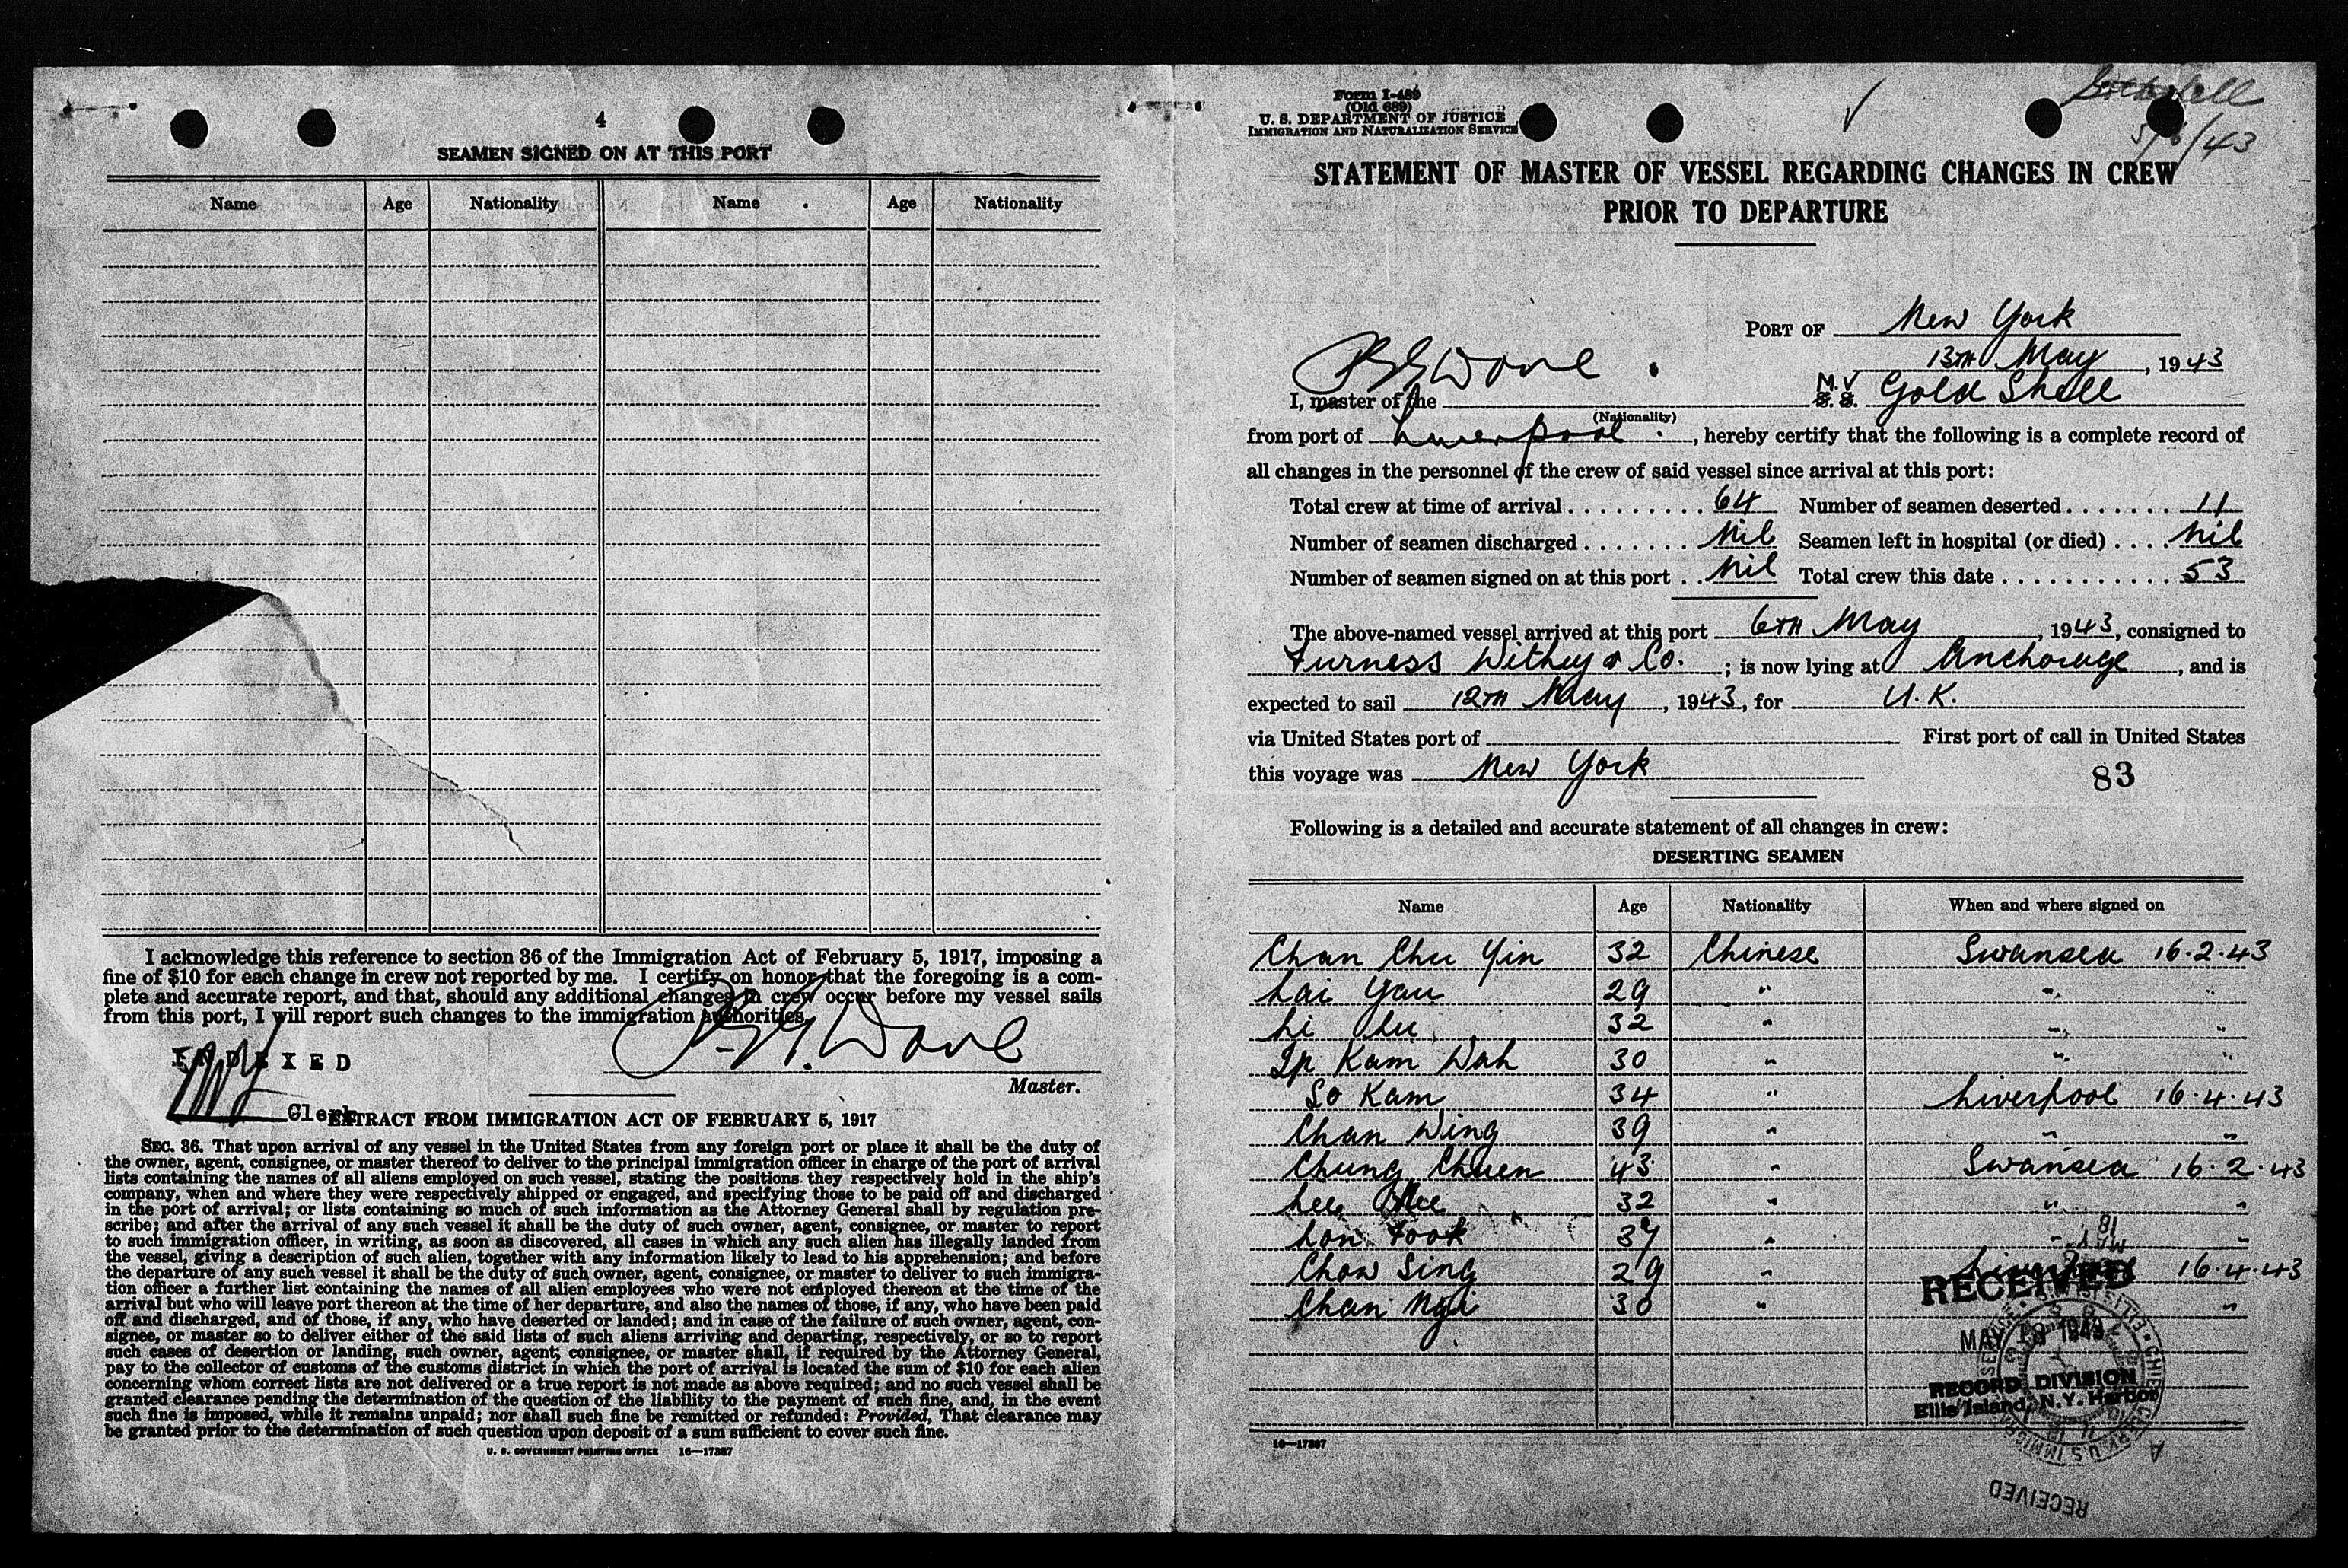 4
SEAMEN SIGNED ON AT THIS PORT
Name Age Nationality Name Age Nationality
I acknowledge this reference to section 36 of the Immigration Act of February 5, 1917, imposing a
fine of $10 for each change in crew not reported by me. I certify on honor that the foregoing is a com-
plete and accurate report, and that, should any additional changes in crew occur before my vessel sails
from this port, I will report such changes to the immigration authorities.
INDEXED
Master.
Clerk
EXTRACT FROM IMMIGRATION ACT OF FEBRUARY 5, 1917
SEC. 36. That upon arrival of any vessel in the United States from any foreign port or place it shall be the duty of
the owner, agent, consignee, or master thereof to deliver to the principal immigration officer in charge of the port of arrival
lists containing the names of all aliens employed on such vessel, stating the positions they respectively hold in the ship's
company, when and where they were respectively shipped or engaged, and specifying those to be paid off and discharged
in the port of arrival; or lists containing so much of such information as the Attorney General shall by regulation pre-
scribe; and after the arrival of any such vessel it shall be the duty of such owner, agent, consignee, or master to report
to such immigration officer, in writing, as soon as discovered, all cases in which any such alien has illegally landed from
the vessel, giving a description of such alien, together with any information likely to lead to his apprehension; and before
the departure of any such vessel it shall be the duty of such owner, agent, consignee, or master to deliver to such immigra-
tion officer a further list containing the names of all alien employees who were not employed thereon at the time of the
arrival but who will leave port thereon at the time of her departure, and also the names of those, if any, who have been paid
off and discharged, and of those, if any, who have deserted or landed; and in case of the failure of such owner, agent, con-
signee, or master so to deliver either of the said lists of such aliens arriving and departing, respectively, or so to report
such cases of desertion or landing, such owner, agent, consignee, or master shall, if required by the Attorney General,
pay to the collector of customs of the customs district in which the port of arrival is located the sum of $10 for each alien
concerning whom correct lists are not delivered or a true report is not made as above required; and no such vessel shall be
granted clearance pending the determination of the question of the liability to the payment of such fine, and, in the event
such fine is imposed, while it remains unpaid; nor shall such fine be remitted or refunded: Provided, That clearance may
be granted prior to the determination of such question upon deposit of a sum sufficient to cover such fine.
U. S. GOVERNMENT PRINTING OFFICE 16—17387
Form I-489
(Old 689)
U. S. DEPARTMENT OF JUSTICE
IMMIGRATION AND NATURALIZATION SERVICE
5/6/43
STATEMENT OF MASTER OF VESSEL REGARDING CHANGES IN CREW
PRIOR TO DEPARTURE
PORT OF New York
13TH May, 1943
I, master of the M.V S. S. Gold Shell
(Nationality)
from port of Liverpool, hereby certify that the following is a complete record of
all changes in the personnel of the crew of said vessel since arrival at this port:
Total crew at time of arrival 64 Number of seamen deserted 11
Number of seamen discharged Nil Seamen left in hospital (or died) Nil
Number of seamen signed on at this port Nil Total crew this date 53
The above-named vessel arrived at this port 6TH May, 1943, consigned to
Furness Withy & Co.; is now lying at Anchorage, and is
expected to sail 12TH May, 1943, for U.K.
via United States port of First port of call in United States
this voyage was New York
83
Following is a detailed and accurate statement of all changes in crew:
DESERTING SEAMEN
Name Age Nationality When and where signed on
Chan Chu Yin 32 Chinese Swansea 16.2.43
Lai Yau 29 " " "
Li Lu 32 " " "
Ip Kam Wah 30 " " "
So Kam 34 " Liverpool 16.4.43
Chan Wing 39 " " "
Chung Chuen 43 " Swansea 16.2.43
Lee 32 " " "
Lon Fook 37 " " "
Chow Sing 29 " Liverpool 16.4.43
Chan Ngi 30 " "
RECEIVED
MAY 1943
RECORD DIVISION
Ellis Island, N.Y. Harbor
16—17387
RECEIVED